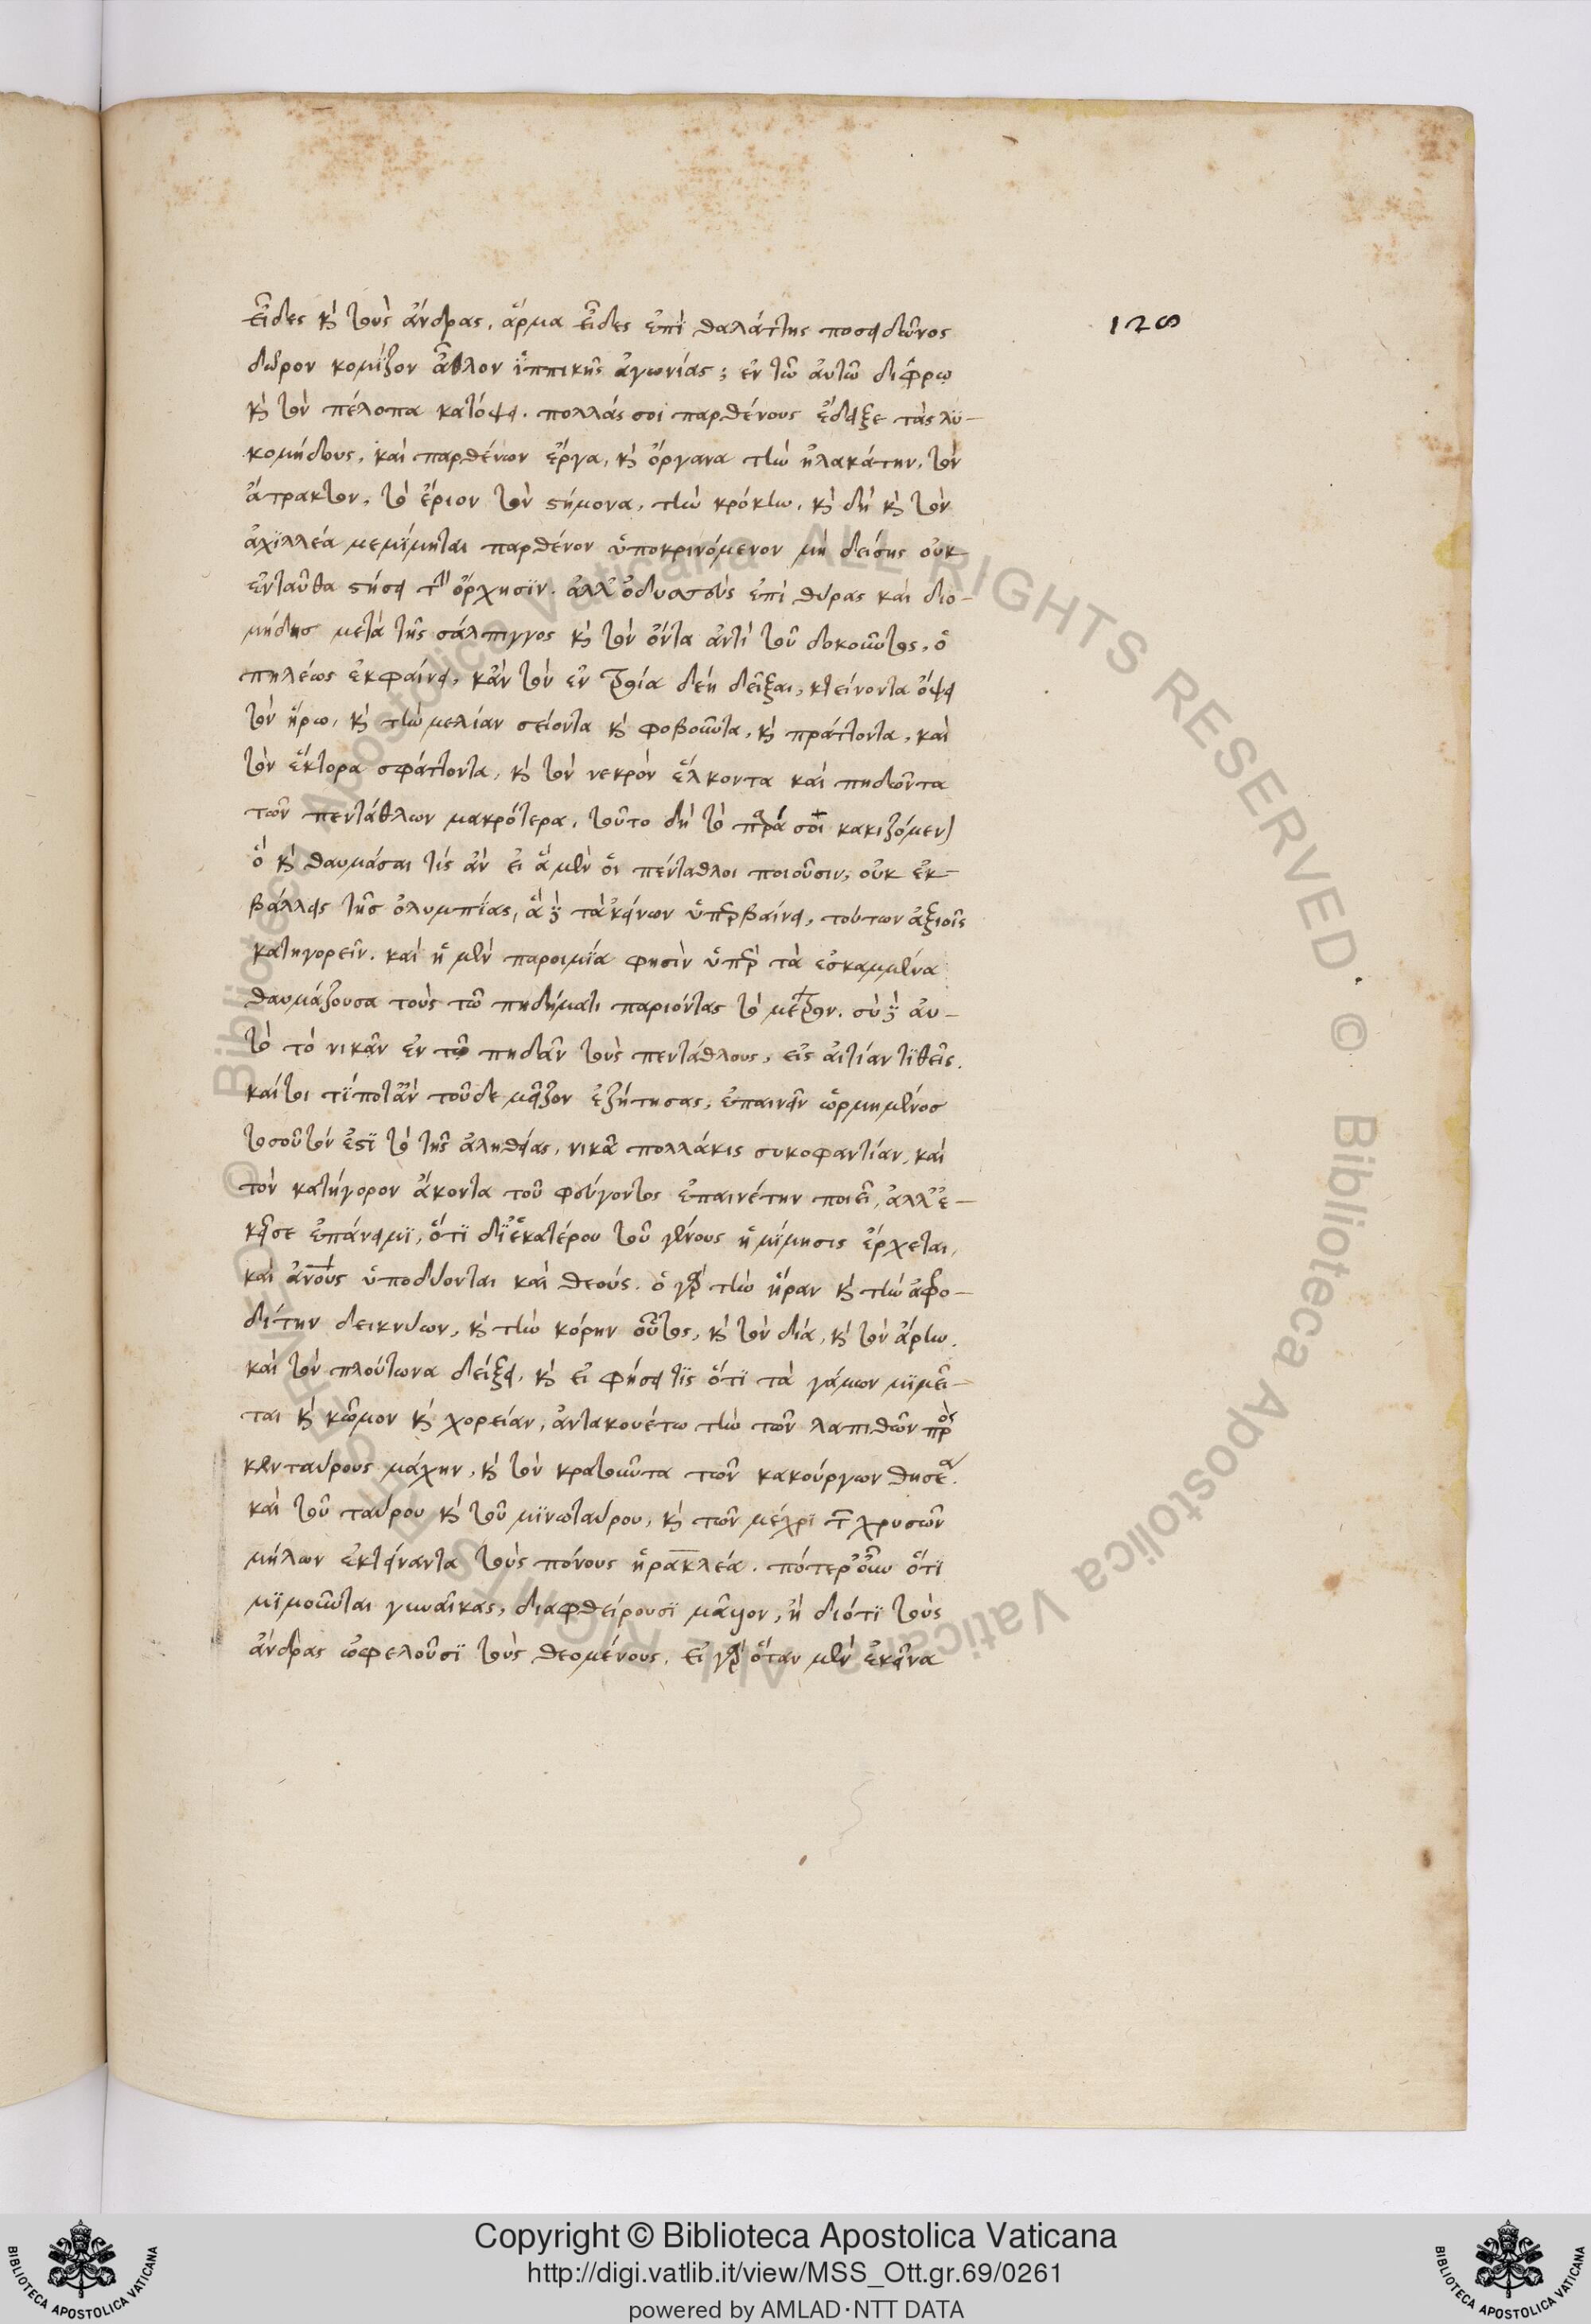 128
εἶδες κ τοὺς ἄνδρας. ἅρμα εἶδες ἐπὶ θαλάττης ποσειδῶνος
δῶρον κομίζον ἆθλον ἱππικῆς ἀγωνίας; ἐν τῶ αὐτῶ δίφρω
κ τὸν πέλοπα κατόψει. πολλάς σοι παρθένους ἔδειξε τὰς λυ-
κομήδους. καὶ παρθένων ἔργα, κ ὄργανα τὴν ἠλακάτην, τὸν
ἄτρακτον, τὸ ἔριον τὸν στήμονα, τὴν κρόκην. κ δὴ κ τὸν
ἀχιλλέα μεμίμηται παρθένον ὑποκρινόμενον μὴ δείσης οὐκ
ἐνταῦθα στήσει τὴν ὄρχησιν. ἀλλ' ὀδυσσεὺς ἐπὶ θύρας καὶ διο-
μήδης μετὰ τῆς σάλπιγγος κ τὸν ὄντα ἀντὶ τοῦ δοκοῦντος, ὁ
πηλέως ἐκφαίνει, κἂν τὸν ἐν τροία δέη δεῖξαι, κτείνοντα ὄψει
τὸν ἥρω, κ τὴν μελίαν σείοντα κ φοβοῦντα, κ πράττοντα, καὶ
τὸν ἕκτορα σφάττοντα, κ τὸν νεκρὸν ἕλκοντα καὶ πηδῶντα
τῶν πεντάθλων μακρότερα. τοῦτο δὴ τὸ παρὰ σοὶ κακιζόμενον
ὃ κ θαυμάσαι τίς ἂν εἰ ἃ μὲν οἱ πένταθλοι ποιοῦσιν, οὐκ ἐκ-
βάλλεις τῆς ὀλυμπίας, ἃ δὲ τἀκείνων ὑπερβαίνει, τούτων ἀξιοῖς
κατηγορεῖν. καὶ ἡ μὲν παροιμία φησὶν ὑπὲρ τὰ ἐσκαμμένα
θαυμάζουσα τοὺς τῶ πηδήματι παριόντας τὸ μέτρον. σὺ δὲ αὐ-
τὸ τὸ νικᾶν ἐν τῶ πηδᾶν τοὺς πεντάθλους, εἰς αἰτίαν τιθεῖς.
καίτοι τί ποτ' ἂν τοῦδε μεῖζον ἐζήτησας, ἐπαινεῖν ὡρμημένος
τοσοῦτόν ἐστι τὸ τῆς ἀληθείας, νικᾶ πολλάκις συκοφαντίαν, καὶ
τὸν κατήγορον ἄκοντα τοῦ φεύγοντος ἐπαινέτην ποιεῖ, ἀλλ' ἐ-
κεῖσε ἐπάνειμι, ὅτι δι' ἑκατέρου τοῦ γένους ἡ μίμησις ἔρχεται,
καὶ ἀνους ὑποδύονται καὶ θεούς. ὁ γὰρ τὴν ἥραν κ τὴν ἀφρο-
δίτην δεικνύων, κ τὴν κόρην οὗτος, κ τὸν δία, κ τὸν ἄρην.
καὶ τὸν πλούτωνα δείξει. κ εἰ φήσει τις ὅτι τὰ γάμων μιμεῖ-
ται κ κῶμον κ χορείαν, ἀντακουέτω τὴν τῶν λαπιθῶν πρὸς
κενταύρους μάχην, κ τὸν κρατοῦντα τῶν κακούργων θησέα.
καὶ τοῦ ταύρου κ τοῦ μινωταύρου, κ τῶν μέχρι τῶν χρυσῶν
μήλων ἐκτείναντα τοὺς πόνους ἡρακλέα. πότερ' οὖν ὅτι
μιμοῦνται γυναῖκας, διαφθείρουσι μᾶλλον, ἢ διότι τοὺς
ἄνδρας ὠφελοῦσι τοὺς θεομένους. εἰ γὰρ ὅταν μὲν ἐκεῖνα
© Biblioteca Apostolica Vaticana ALL RIGHTS RESERVED. © Biblioteca Apostolica Vaticana ALL RIGHTS RESERVED.
BIBLIOTECA APOSTOLICA VATICANA
Copyright © Biblioteca Apostolica Vaticana
http://digi.vatlib.it/view/MSS_Ott.gr.69/0261
powered by AMLAD·NTT DATA
BIBLIOTECA APOSTOLICA VATICANA